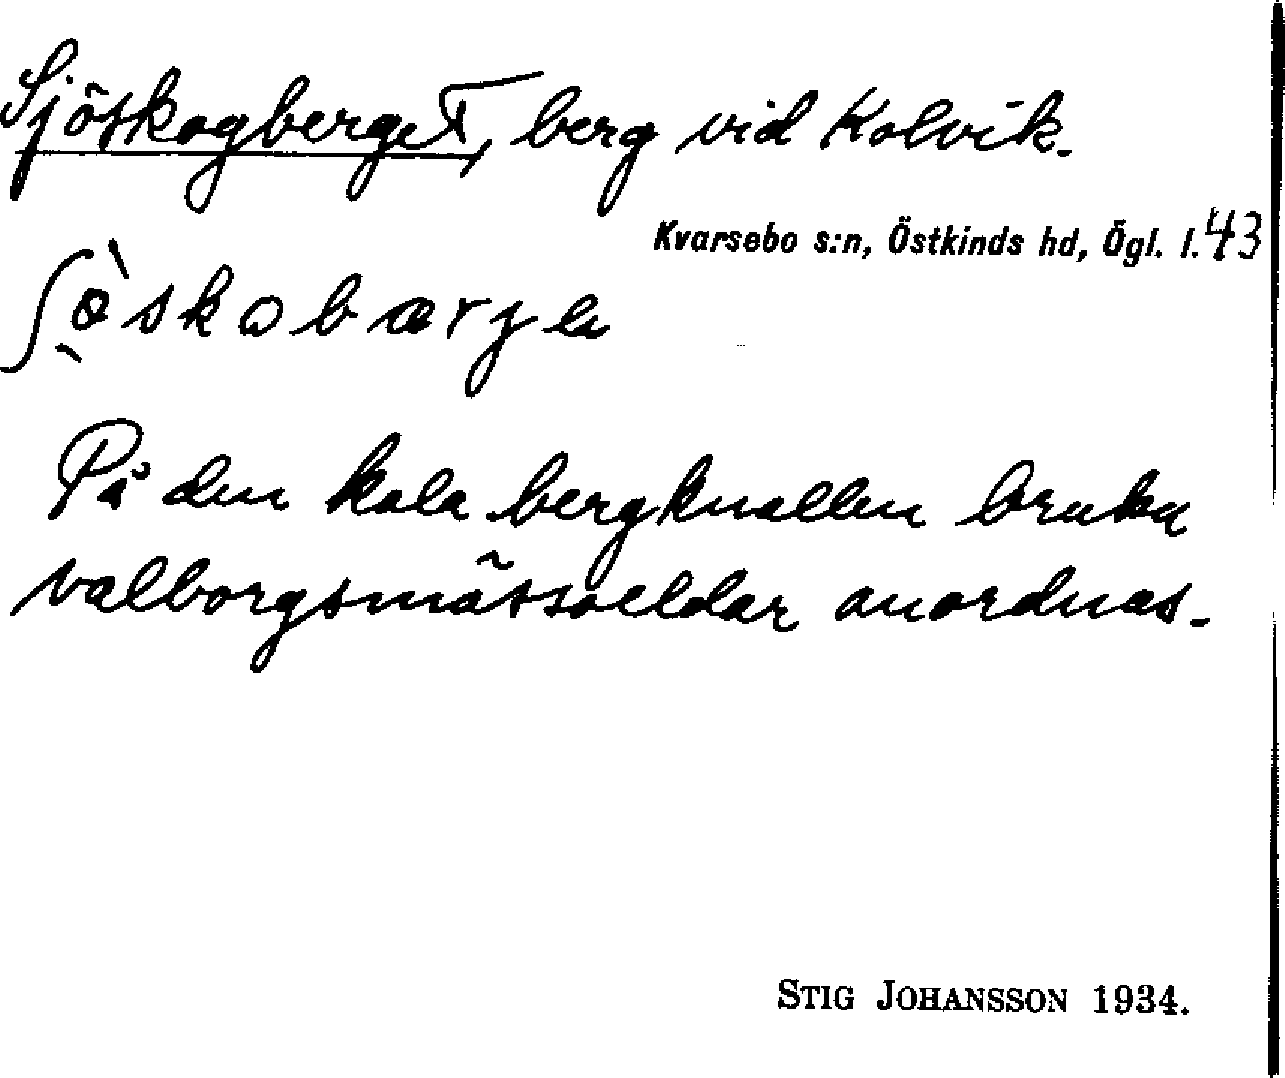 Sjöskogberget, berg vid Kolvik.
Kvarsebo s:n, Östkinds hd, Ögl. l. 43
På den kala bergknallen bruka
valborgsmässoeldar anordnas.
STIG JOHANSSON 1934.